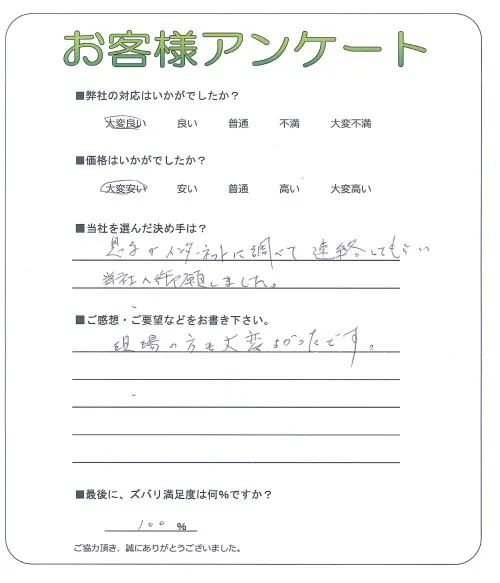 お客様アンケート
■弊社の対応はいかがでしたか？
大変良い 良い 普通 不満 大変不満
■価格はいかがでしたか？
大変安い 安い 普通 高い 大変高い
■当社を選んだ決め手は？
インターネットに調べて 連絡してもらい
当社へ御願しました。
■ご感想・ご要望などをお書き下さい。
現場の方も大変よかったです。
■最後に、ズバリ満足度は何％ですか？
100 %
ご協力頂き、誠にありがとうございました。